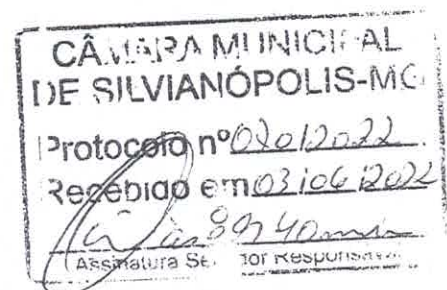 CÂMARA MUNICIPAL
DE SILVIANÓPOLIS-MG
Protocolo nº 080/2022
Recebido em 03/06/2022
às 8h40min
Assinatura Servidor Responsável